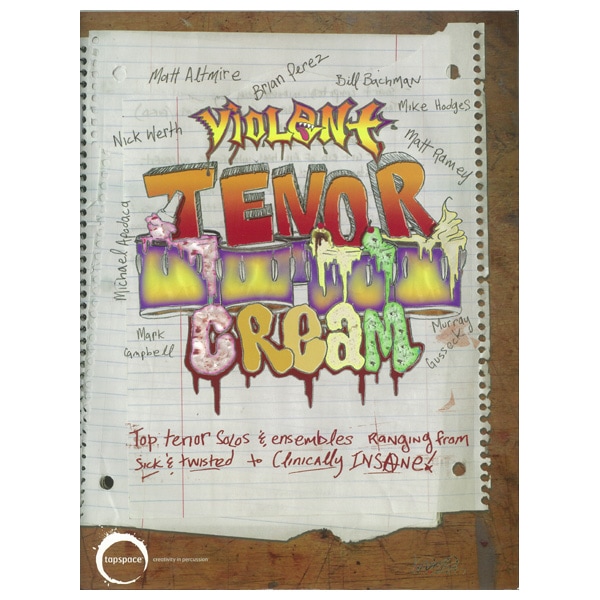 Matt Altmire
Brian Perez
Bill Bachman
Mike Hodges
Nick Werth
Matt Ramey
VIOLENT
TENOR
CREAM
Michael Apodaca
Mark
Campbell
Murray
Gussek
Top tenor solos & ensembles RANGING from
sick & twisted to Clinically INSANE!
tapspace
creativity in percussion